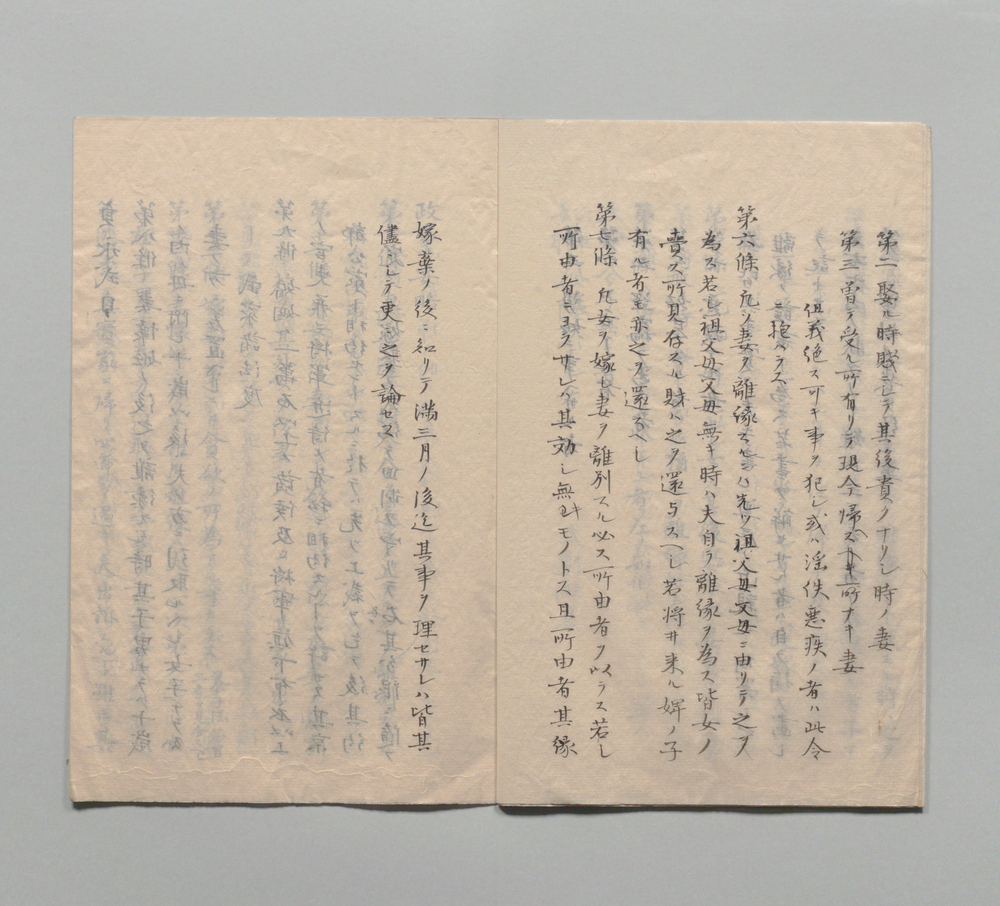 第二娶ル時賤ニシテ其後貴クナリシ時ノ妻
第三曽テ受ル所有リテ現今帰スヘキ所ナキ妻
但義絶ス可キ事ヲ犯シ或ハ淫佚悪疾ノ者ハ此令
ニ拘ハラス
第六條 凡ソ妻ヲ離縁スルニハ先ツ祖父母父母ニ由リテ之ヲ
為ス若シ祖父母父母無キ時ハ夫自ラ離縁ヲ為ス皆女ノ
賷ス所見存スル財ハ之ヲ還与スヘシ若将井来ル婢ノ子
有ル者モ亦之ヲ還スヘシ
第七條 凡女ヲ嫁シ妻ヲ離別スル必ス所由者ヲ以ラス若シ
所由者ニヨラサレハ其効シ無キモノトス且所由者其縁
嫁棄ノ後ニ知リテ満三月ノ後迄其事ヲ理セサレハ皆其
儘ニシテ更ニ之ヲ論セス